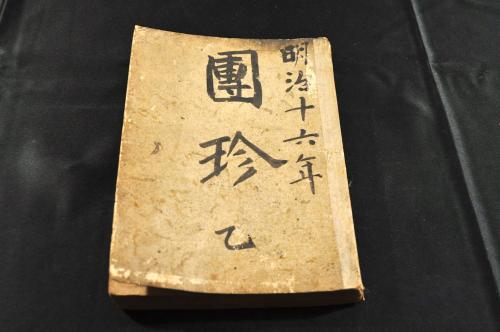 明治十六年
團珍
乙